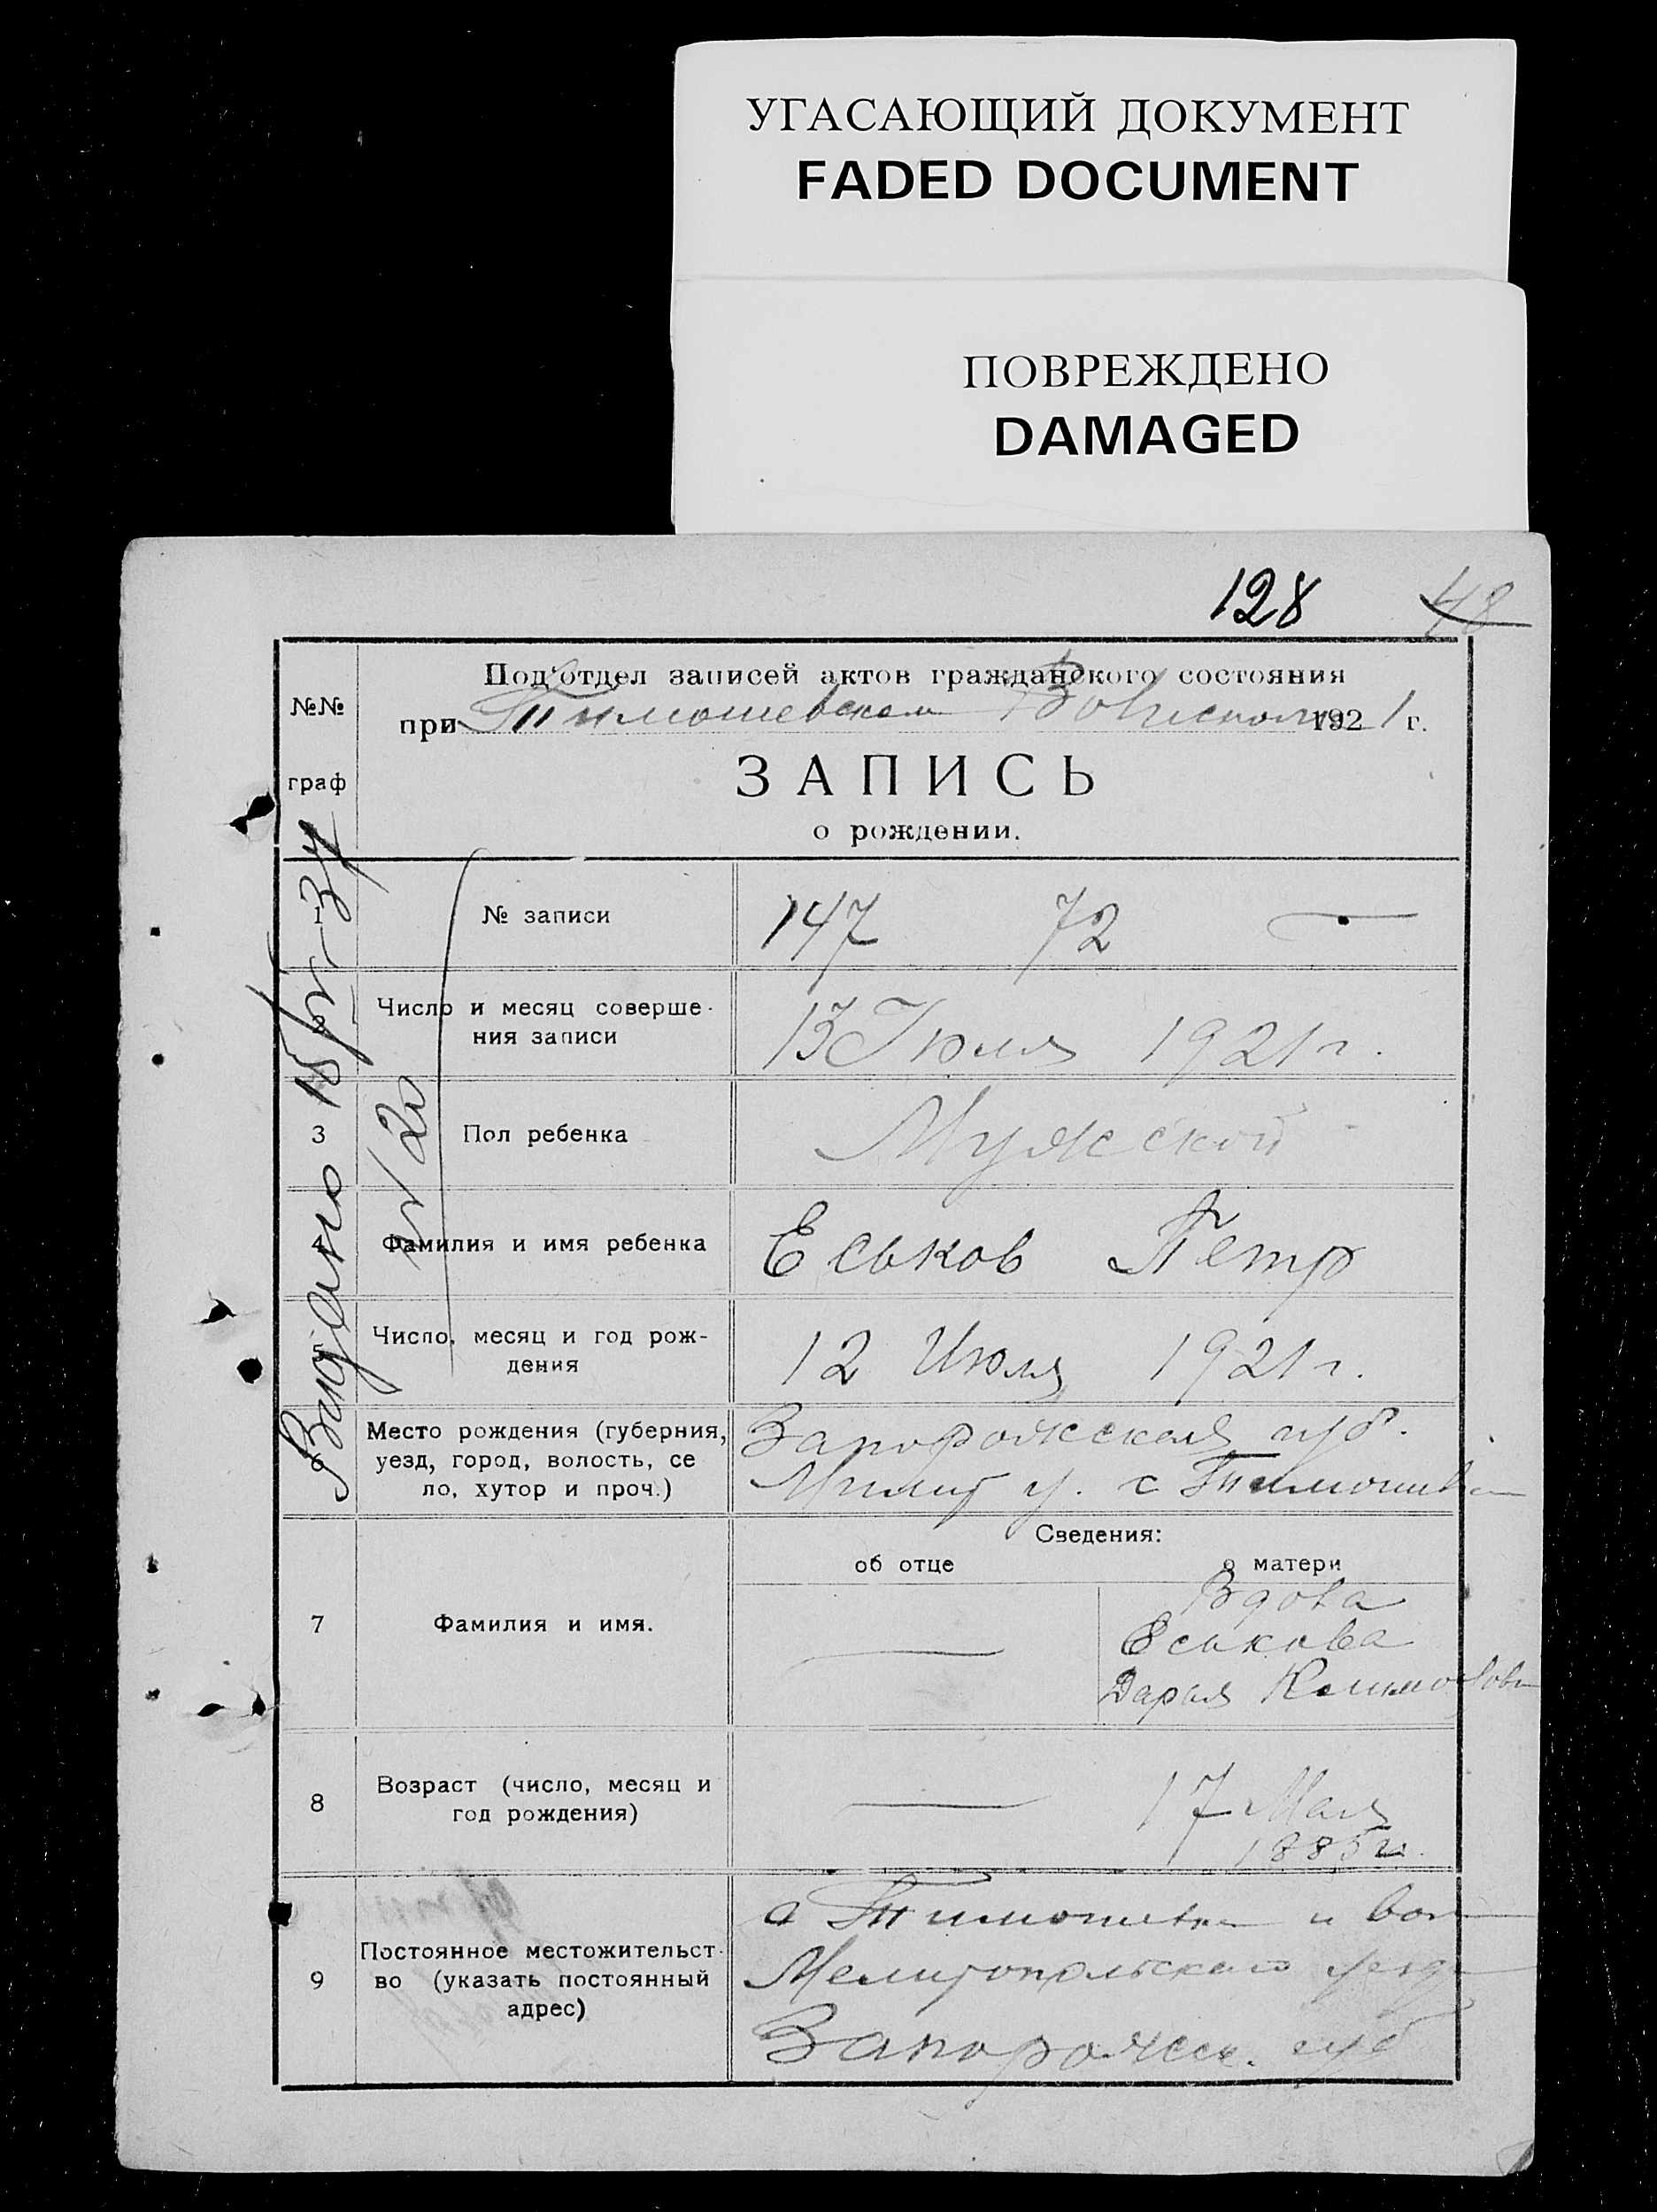 УГАСАЮЩИЙ ДОКУМЕНТ
FADED DOCUMENT
ПОВРЕЖДЕНО
DAMAGED
128 48
№№
граф
Под'отдел записей актов гражданского состояния
при Тимошевском Волисполк 1921 г.
ЗАПИСЬ
о рождении.
Выдано 15/V-34
№ 20
1 № записи 147 72 —
2 Число и месяц соверше-
ния записи
13 Июля 1921 г.
3 Пол ребенка Мужской
4 Фамилия и имя ребенка Еськов Петр
5 Число, месяц и год рож-
дения
12 Июля 1921 г.
6 Место рождения (губерния,
уезд, город, волость, се
ло, хутор и проч.)
Запорожская губ.
Мелит у. с Тимошевка
Сведения:
об отце о матери
7 Фамилия и имя. —
Вдова
Еськова
Дарья
8 Возраст (число, месяц и
год рождения)
— 17 Мая
1885 г.
9 Постоянное местожительст-
во (указать постоянный
адрес)
с Тимошевка и вол
Мелитопольского уезд
Запорожск. губ